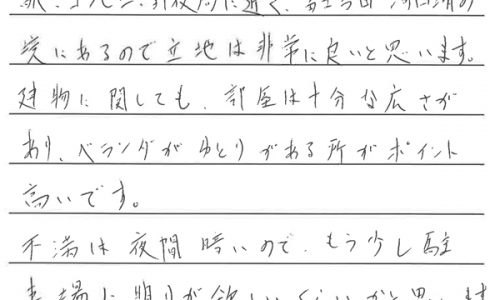 駅、コンビニ、市役所に近く、富士吉田 河口湖の
境にあるので立地は非常に良いと思います。
建物に関しても、部屋は十分な広さが
あり、ベランダがゆとりがある所がポイント
高いです。
不満は夜間暗いので、もう少し駐
車場に明りが欲しいくらいかと思います